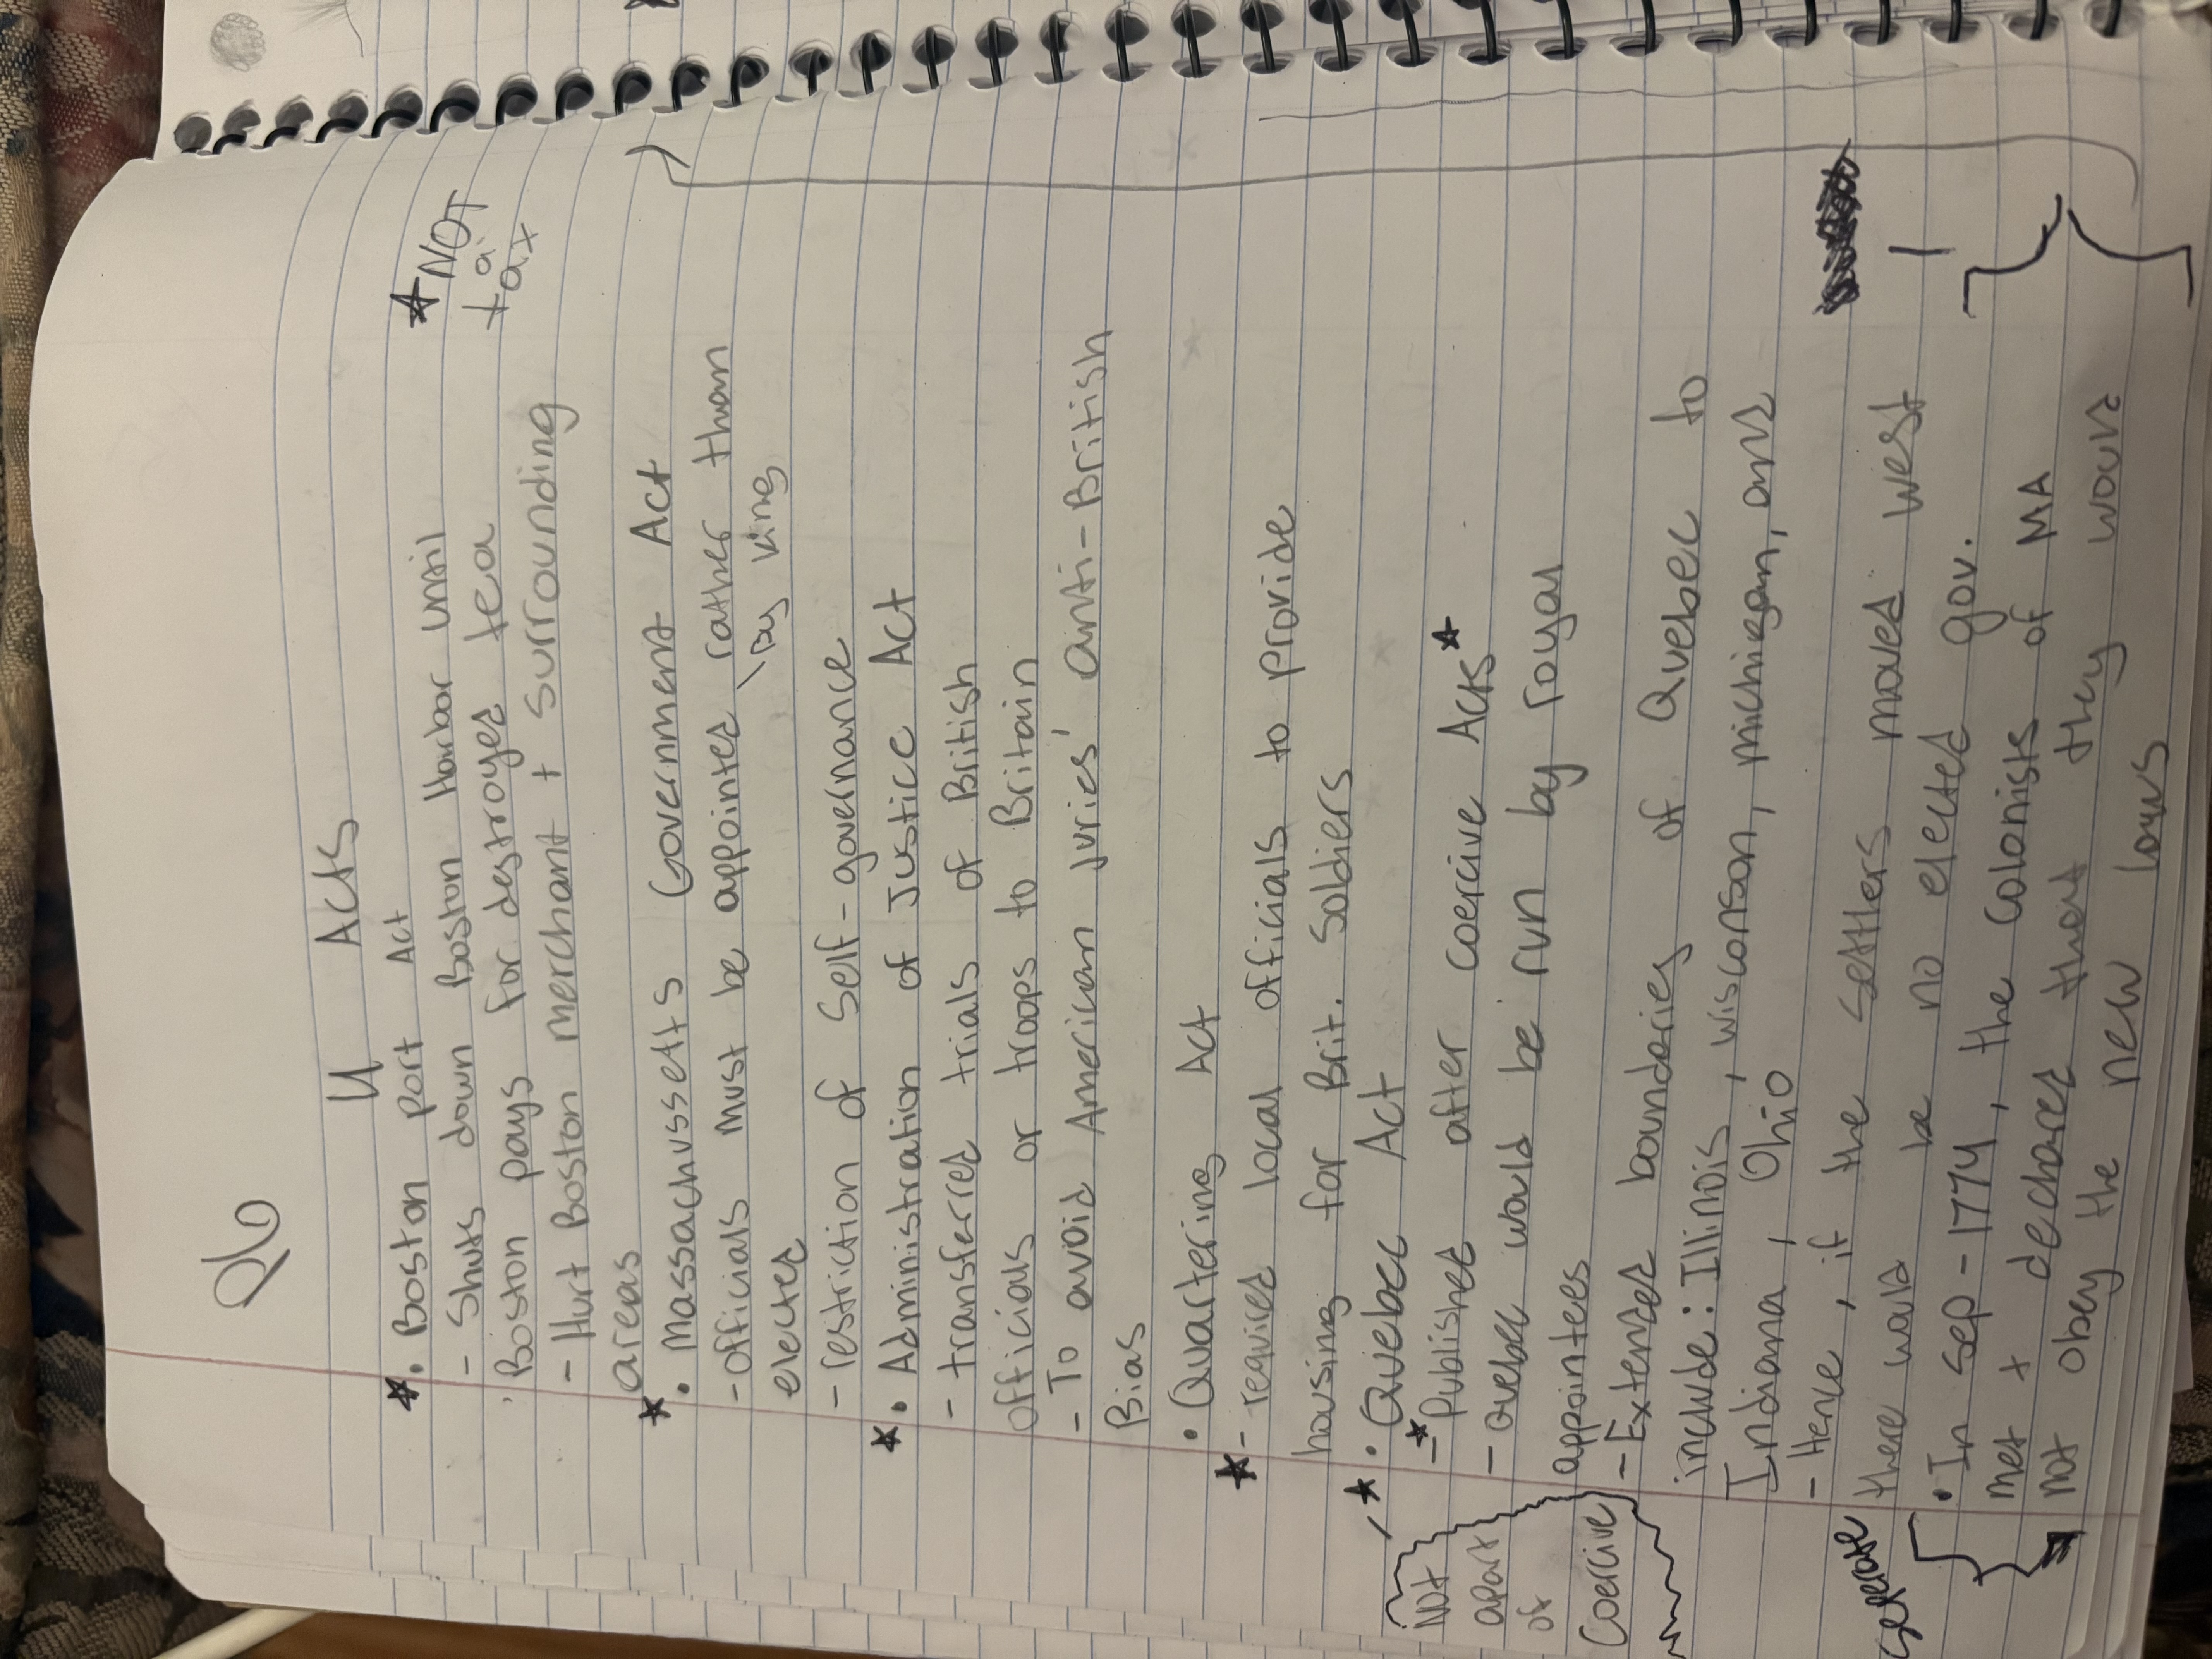 Q6
4 Acts
★ • Boston port Act ★ NOT
- Shuts down Boston Harbor until a
Boston pays for destroyed tea tax
- Hurt Boston merchant + surrounding
areas
★ • Massachussetts Government Act
- officials must be appointed rather than
elected \ by king
- restriction of self-governance
★ • Administration of Justice Act
- transferred trials of British
officials or troops to Britain
- To avoid American juries' anti-British
Bias
• Quartering Act
★ - required local officials to provide
housing for Brit. Soldiers
★ • Quebec Act
-★ Published after coercive Acts ★
Not apart of Coercive
- Quebec would be run by royal
appointees
- Extended boundaries of Quebec to
include: Illinois, wisconson, michigan, and
Indiana, Ohio
- Hence, if the settlers moved west
there would be no elected gov.
seperate
• In Sep-1774, the colonists of MA
met + declared that they would
not obey the new laws